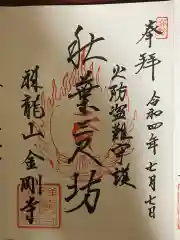 奉拝
令和四年七月七日
火防盗難守護
秋葉三尺坊
龍山金剛寺